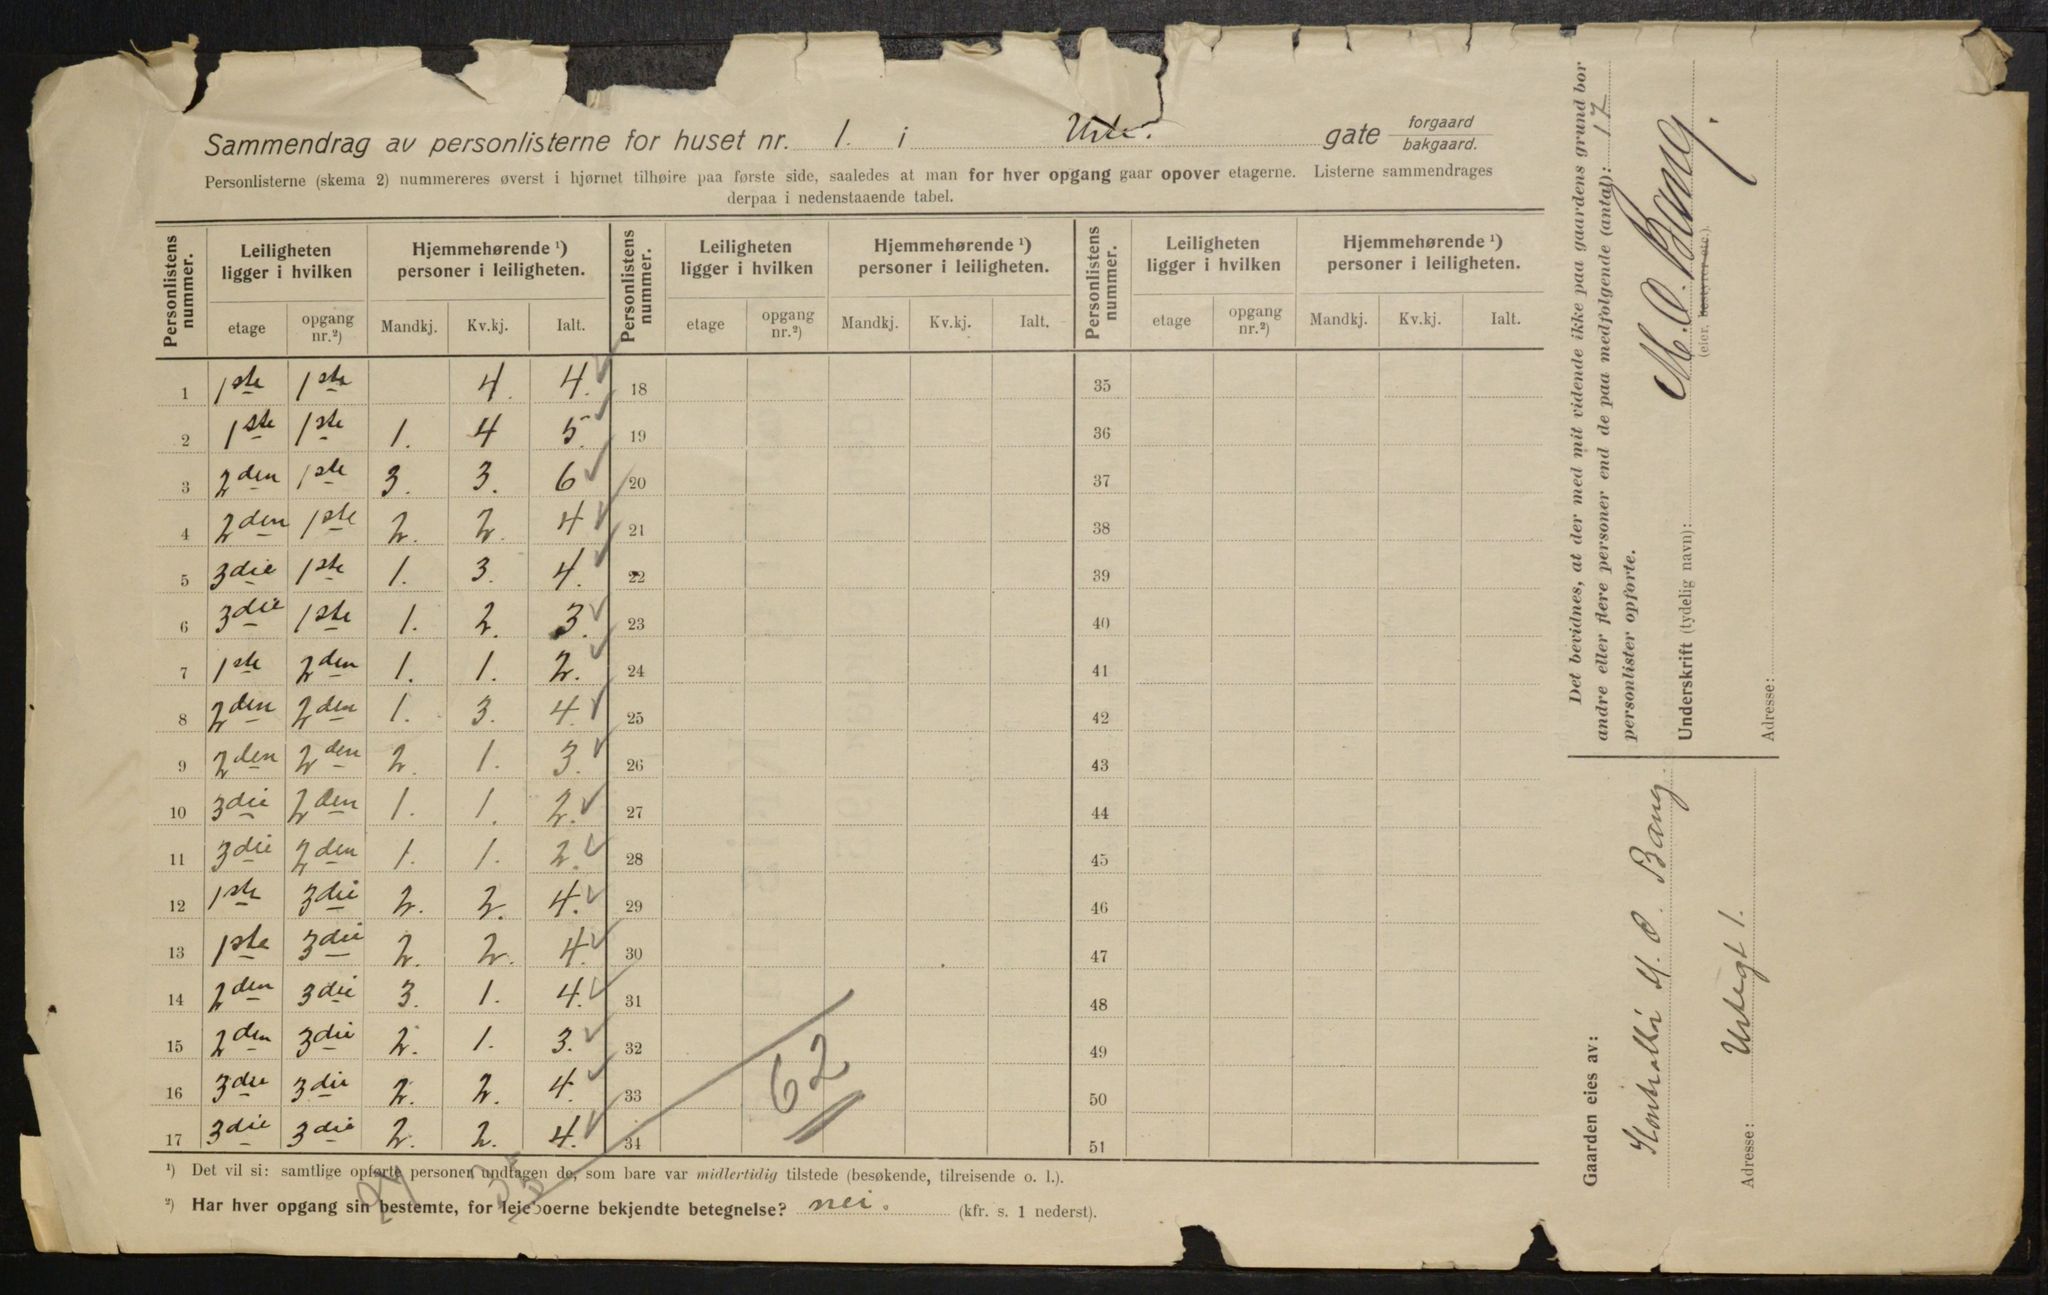 Sammendrag av personlisterne for huset nr. 1. i Urte. gate forgaard bakgaard.
Personlisterne (skema 2) nummereres øverst i hjørnet tilhøire paa første side, saaledes at man for hver opgang gaar opover etagerne. Listerne sammendrages
derpaa i nedenstaaende tabel.
Personlistens nummer. Leiligheten ligger i hvilken Hjemmehørende ¹) personer i leiligheten. Personlistens nummer. Leiligheten ligger i hvilken Hjemmehørende ¹) personer i leiligheten. Personlistens nummer. Leiligheten ligger i hvilken Hjemmehørende ¹) personer i leiligheten.
etage opgang nr.²) Mandkj. Kv.kj. Ialt. etage opgang nr.²) Mandkj. Kv.kj. Ialt. etage opgang nr.²) Mandkj. Kv.kj. Ialt.
1 1ste 1ste 4. 4. 18 35
2 1ste 1ste 1. 4 5. 19 36
3 2den 1ste 3. 3. 6 20 37
4 2den 1ste 2. 2. 4 21 38
5 3die 1ste 1. 3. 4. 22 39
6 3die 1ste 1. 2. 3. 23 40
7 1ste 2den 1. 1. 2. 24 41
8 2den 2den 1. 3. 4. 25 42
9 2den 2den 2. 1. 3. 26 43
10 3die 2den 1. 1. 2. 27 44
11 3die 2den 1. 1. 2. 28 45
12 1ste 3die 2. 2. 4. 29 46
13 1ste 3die 2. 2. 4. 30 47
14 2den 3die 3. 1. 4. 31 48
15 2den 3die 2. 1. 3. 32 49
16 3die 3die 2. 2. 4. 33 50
17 3die 3die 2. 2. 4. 34 51
62
¹) Det vil si: samtlige opførte personer undtagen de, som bare var midlertidig tilstede (besøkende, tilreisende o. l.).
²) Har hver opgang sin bestemte, for leieboerne bekjendte betegnelse? nei. (kfr. s. 1 nederst).
Det bevidnes, at der med mit vidende ikke paa gaardens grund bor
andre eller flere personer end de paa medfølgende (antal): 17
personlister opførte.
Underskrift (tydelig navn): M. O. Bang.
(eier, bestyrer etc.).
Adresse:
Gaarden eies av:
M. O. Bang.
Adresse: Urtegt 1.